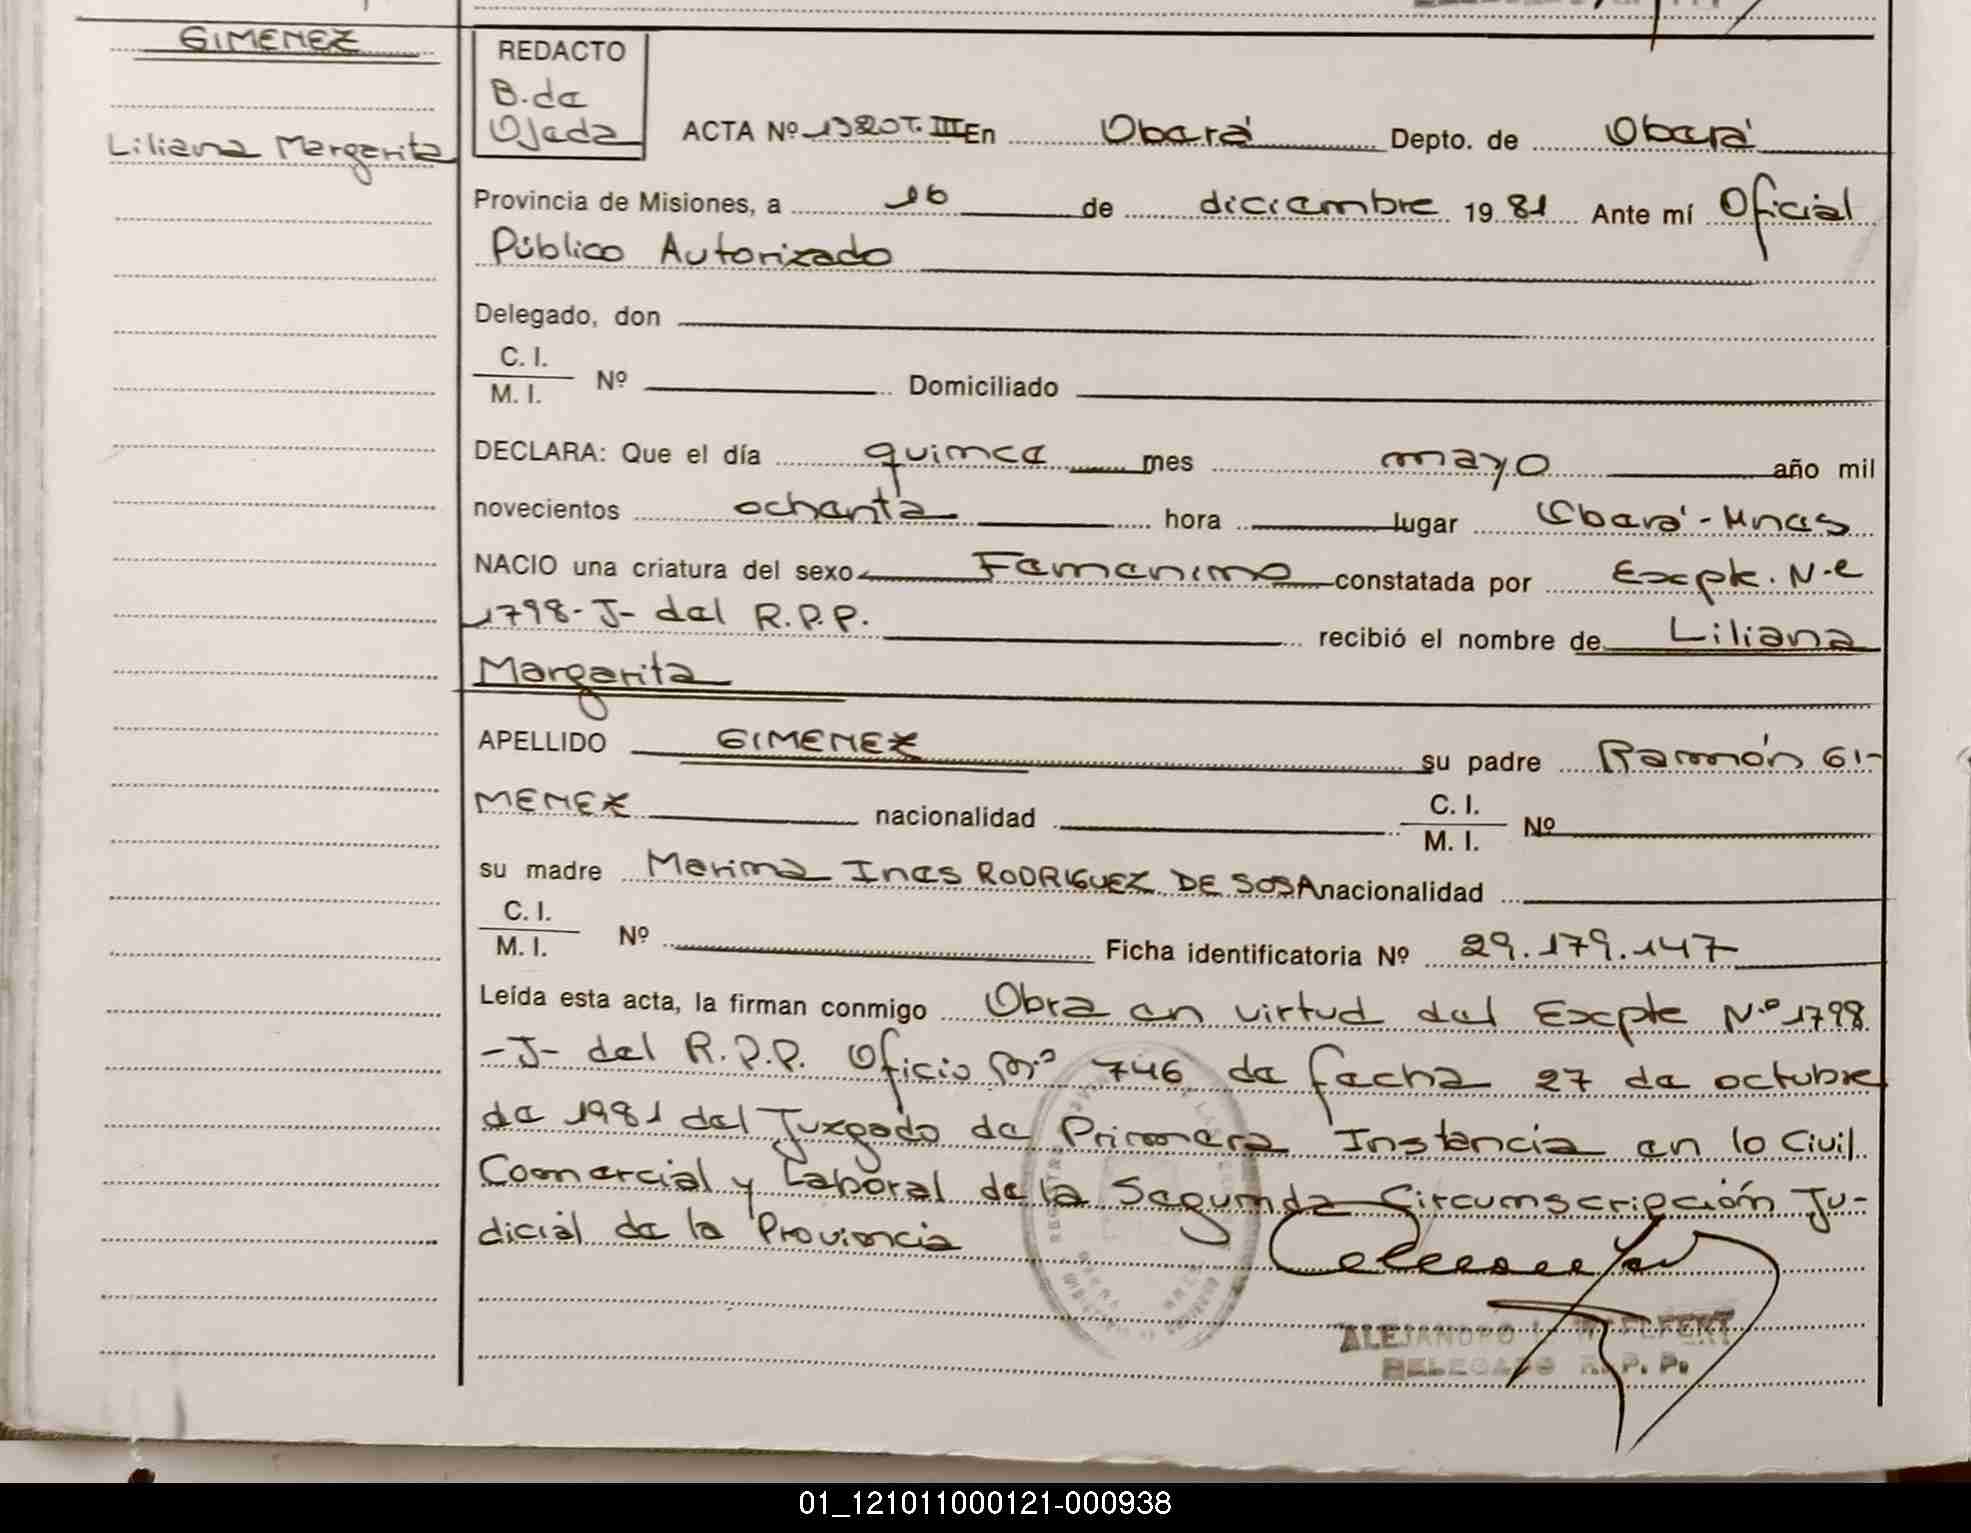 GIMENEZ
Liliana Margarita
REDACTO
B. de
Ojeda
ACTA Nº 1320 T. III En Oberá Depto. de Oberá
Provincia de Misiones, a 16 de diciembre 19 81 Ante mí Oficial
Público Autorizado
Delegado, don
C. I.
M. I. Nº Domiciliado
DECLARA: Que el día quince mes mayo año mil
novecientos ochenta hora lugar Oberá - Mnes
NACIO una criatura del sexo Femenino constatada por Excpte. N.º
1798-J- del R.P.P. recibió el nombre de Liliana
Margarita
APELLIDO GIMENEZ su padre Ramón GI-
MENEZ nacionalidad C. I.
M. I. Nº
su madre Marina Ines RODRIGUEZ DE SOSA nacionalidad
C. I.
M. I. Nº Ficha identificatoria Nº 29.179.147
Leída esta acta, la firman conmigo Obra en virtud del Excpte N.º 1798
-J- del R.P.P. Oficio N.º 746 de fecha 27 de octubre
de 1981 del Juzgado de Primera Instancia en lo Civil
Comercial y Laboral de la Segunda Circumscripción Ju-
dicial de la Provincia
ALEJANDRO
DELEGADO R. P. P.
01_121011000121-000938